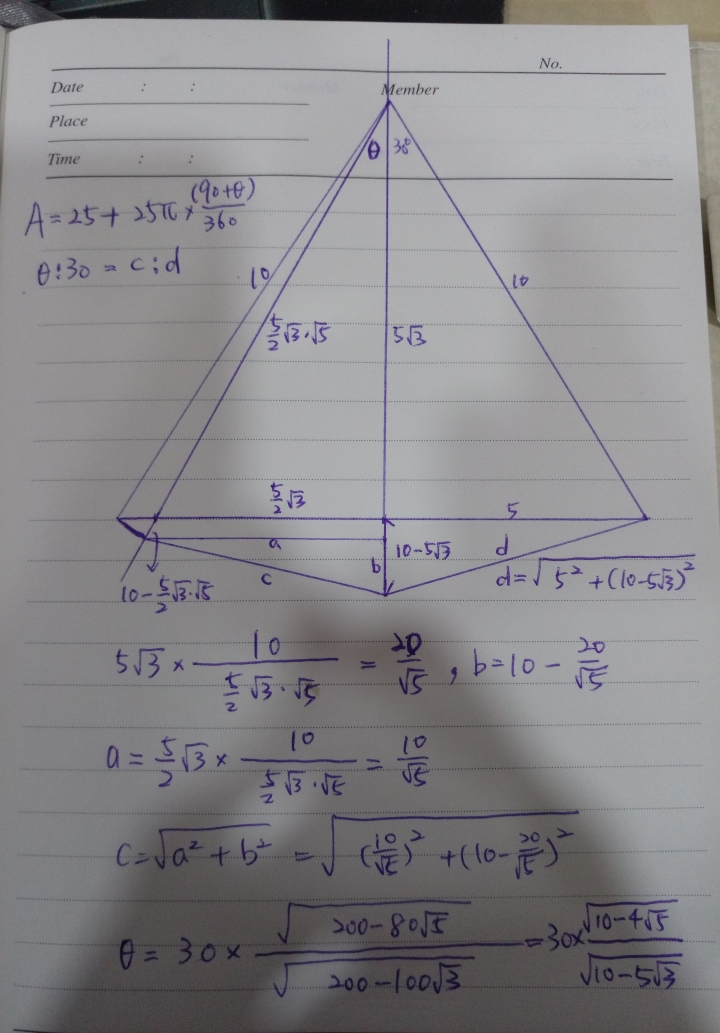 No.
Date : :
Member
Place
Time : :
θ 30
A = 25 + 25π × (90+θ)/360
θ:30 = c:d
10
10
5/2 √3·√5
5√3
5/2 √3
5
a
b
10-5√3
d
c
d = √(5² + (10-5√3)²)
10 - 5/2 √3·√5
5√3 × 10/(5/2 √3·√5) = 20/√5 , b = 10 - 20/√5
a = 5/2 √3 × 10/(5/2 √3·√5) = 10/√5
c = √(a² + b²) = √((10/√5)² + (10 - 20/√5)²)
θ = 30 × √(200-80√5)/√(200-100√3) = 30× √(10-4√5)/√(10-5√3)